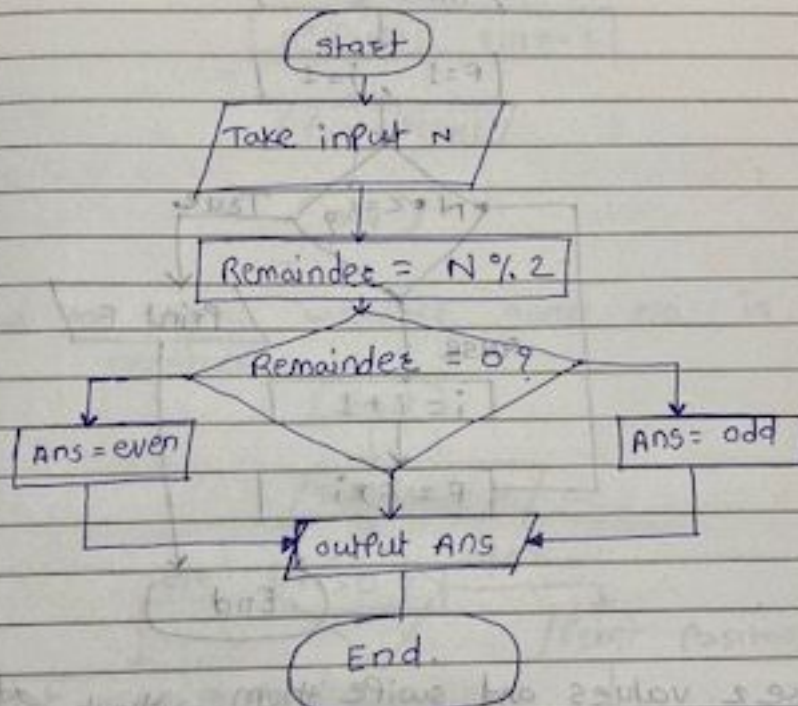 Start
Take input N
Remainder = N % 2
Remainder = 0?
Ans = even
Ans = odd
output Ans
End.